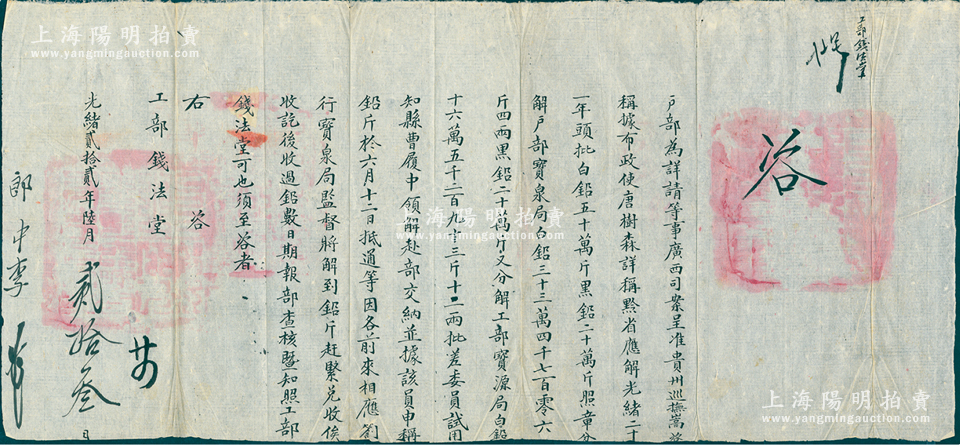 工部錢法堂
咨
戶部為詳請等事廣西司案呈准貴州巡撫嵩咨
稱據布政使唐樹森詳稱黔省應解光緒二十
一年頭批白鉛五十萬斤黑鉛二十萬斤照章分
解戶部寶泉局白鉛三十三萬四千七百零六
斤四兩黑鉛二十萬斤又分解工部寶源局白鉛
十六萬五千二百九十三斤十二兩批差委員試用
知縣曹履中領解赴部交納並據該員申稱
鉛斤於六月十二日抵通等因各前來相應劄
行寶泉局監督將解到鉛斤趕緊兌收俟
收訖後收過鉛數日期報部查核暨知照工部
錢法堂可也須至咨者
右咨
工部錢法堂
光緒貳拾貳年陸月 貳拾叁 日
郎中李
上海陽明拍賣
www.yangmingauction.com
上海陽明拍賣
www.yangmingauction.com
上海陽明拍賣
www.yangmingauction.com
上海陽明拍賣
www.yangmingauction.com
上海陽明拍賣
www.yangmingauction.com